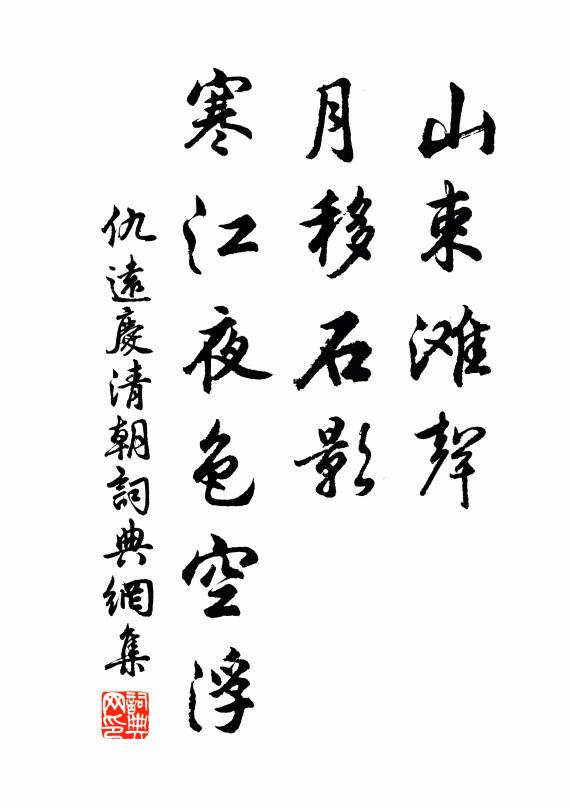 山束滩聲
月移石影
寒江夜色空浮
仇遠慶清朝詞典網集
詞典网印